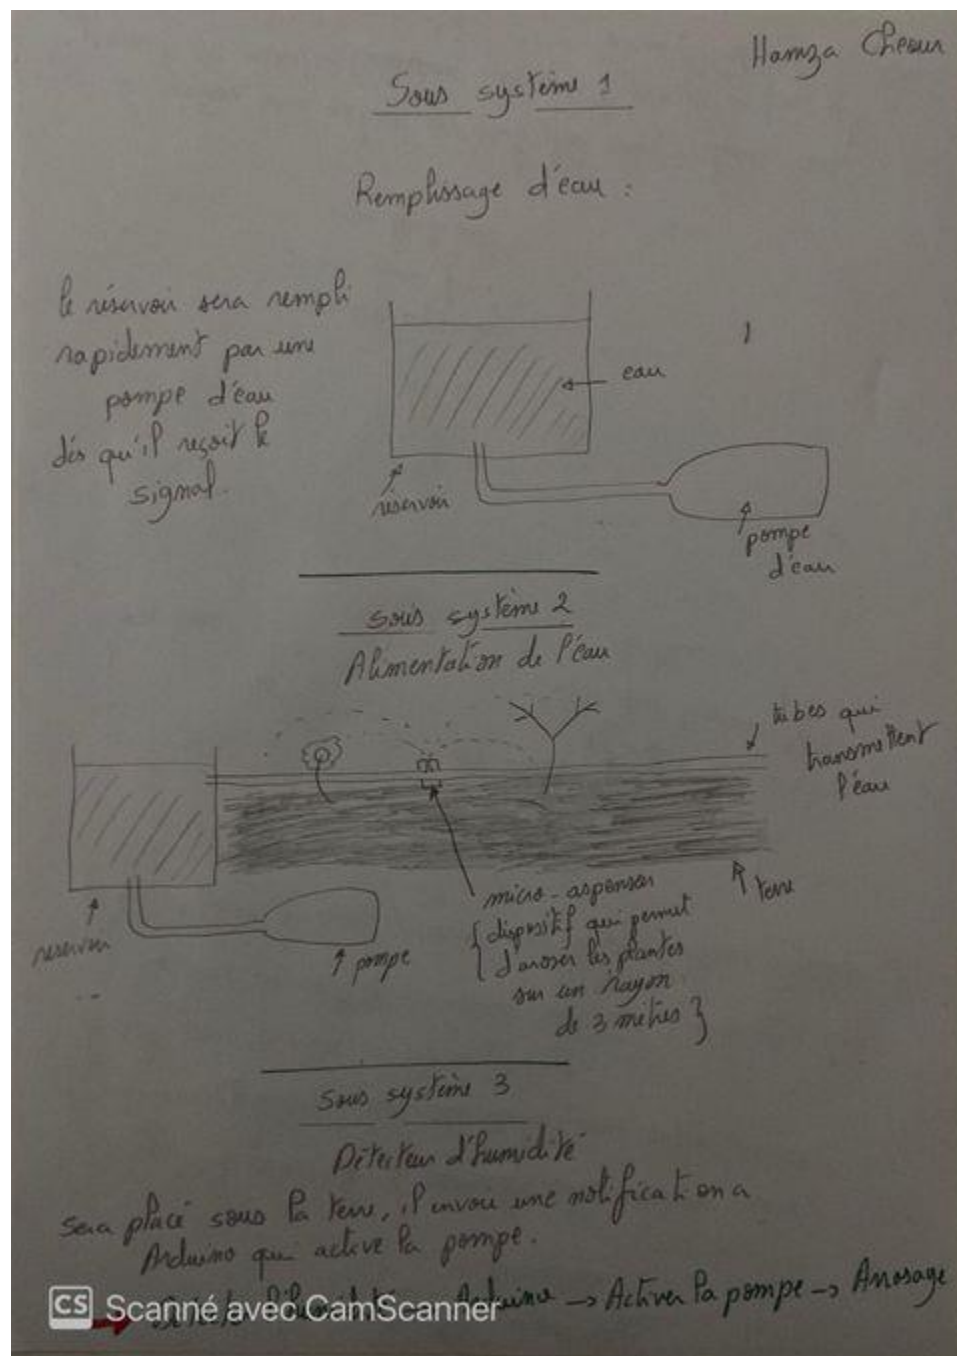 Hamza Cheour
Sous système 1
Remplissage d'eau :
le réservoir sera rempli
rapidement par une
pompe d'eau
dès qu'il reçoit le
signal.
eau
réservoir
pompe
d'eau
Sous système 2
Alimentation de l'eau
tubes qui
transmettent
l'eau
terre
micro-asperseur
{ dispositif qui permet
d'arroser les plantes
sur un rayon
de 3 mètres }
reservoir
pompe
Sous système 3
Détecteur d'humidité
sera placé sous la terre, il envoi une notification a
Arduino qui active la pompe.
Arduino -> Activer la pompe -> Arrosage
CS Scanné avec CamScanner